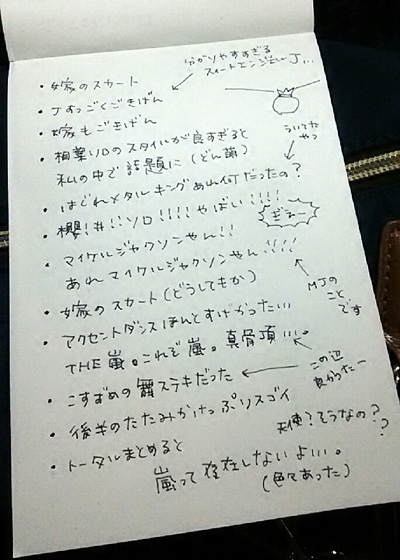 ・嫁のスカート
分かりやすすぎる
スイートエンジェルJ...
・Jすっごくごきげん
・嫁もごきげん
・相葉ソロのスタイルが良すぎると
私の中で話題に(どん萌)
ういてた
やつ
・はぐれメタルキングあれ何だったの?
・櫻!井!!ソロ!!!!やばい!!!!
ぎゃー
・マイケルジャクソンやん!!
あれマイケルジャクソンやん!!!!
MJの
こと
です
・嫁のスカート(どうしてもか)
・アクセントダンスほんとすげかった...
THE嵐。これぞ嵐。真骨頂...。
この辺
良かったー
・こすずめの舞ステキだった
・後半のたたみかけっぷりスゴイ
天使?そうなの??
・トータルまとめると
嵐って存在しないよ...。
(色々あった)